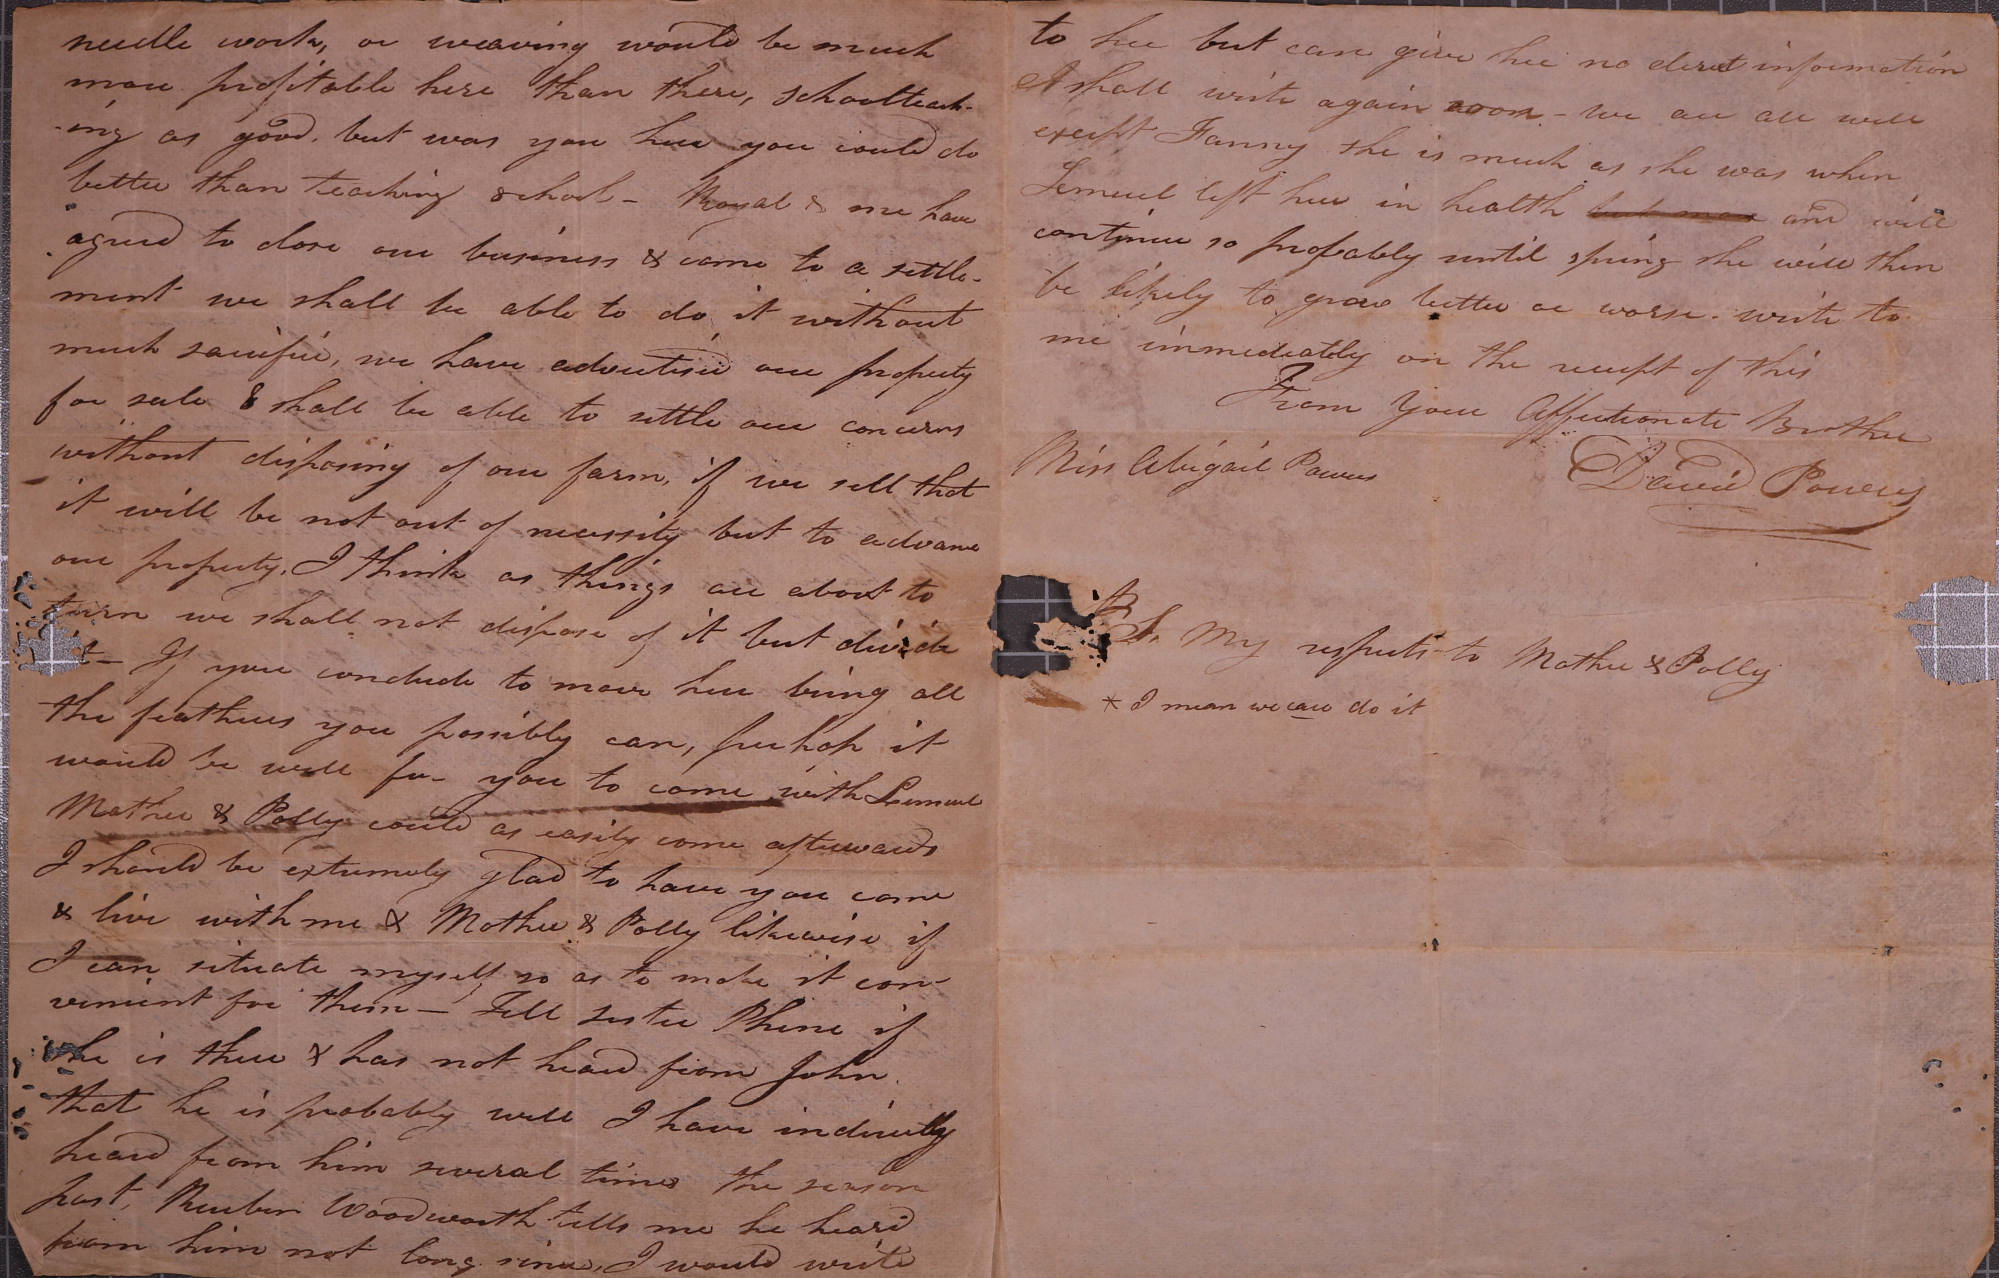 needle work, or weaving would be much
more profitable here than there, schoolteach-
-ing as good. but was you here you could do
better than teaching school - Royal & me have
agreed to close our business & come to a settle-
ment we shall be able to do it without
much sacrifice, we have advertised our property
for sale & shall be able to settle our concerns
without disposing of our farm, if we sell that
it will be not out of necessity but to advance
our property. I think as things are about to
turn we shall not dispose of it but divide
it - If you conclude to move here bring all
the feathers you possibly can, perhaps it
would be well for you to come with Lemuel
Mother & Polly could as easily come afterwards
I should be extremely glad to have you come
& live with me & Mother & Polly likewise if
I can situate myself so as to make it con-
venient for them - Tell sister Phine if
she is there & has not heard from John.
that he is probably well I have indirectly
heard from him several times the season
past, Reuben Woodworth tells me he heard
from him not long since, I would write
to her but can give her no direct information
I shall write again soon - we are all well
except Fanny she is much as she was when
Lemuel left here in health but more and will
continue so probably until spring she will then
be likely to grow better or worse. write to
me immediately on the receipt of this
From Your Affectionate Brother
David Powers
Miss Abigail Powers
P.S. My respects to Mother & Polly
* I mean we can do it